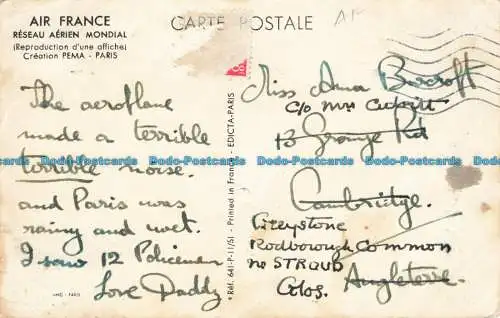 AIR FRANCE
RÉSEAU AÉRIEN MONDIAL
(Reproduction d'une affiche)
Création PEMA - PARIS
CARTE POSTALE
The aeroplane
made a terrible
terrible noise.
and Paris was
rainy and wet.
I saw 12 Policemen
Love Daddy
IMP. - PARIS
* Réf. 641-P-11/51 - Printed in France - EDICTA-PARIS
Miss Anna Barcroft
c/o Mrs Cupitt
13 Grange Rd
Cambridge.
Greystone
Rodborough Common
nr STROUD
Glos.
Angleterre.
bobs-Postcards bobs-Postcards bobs-Postcards bobs-Postcards